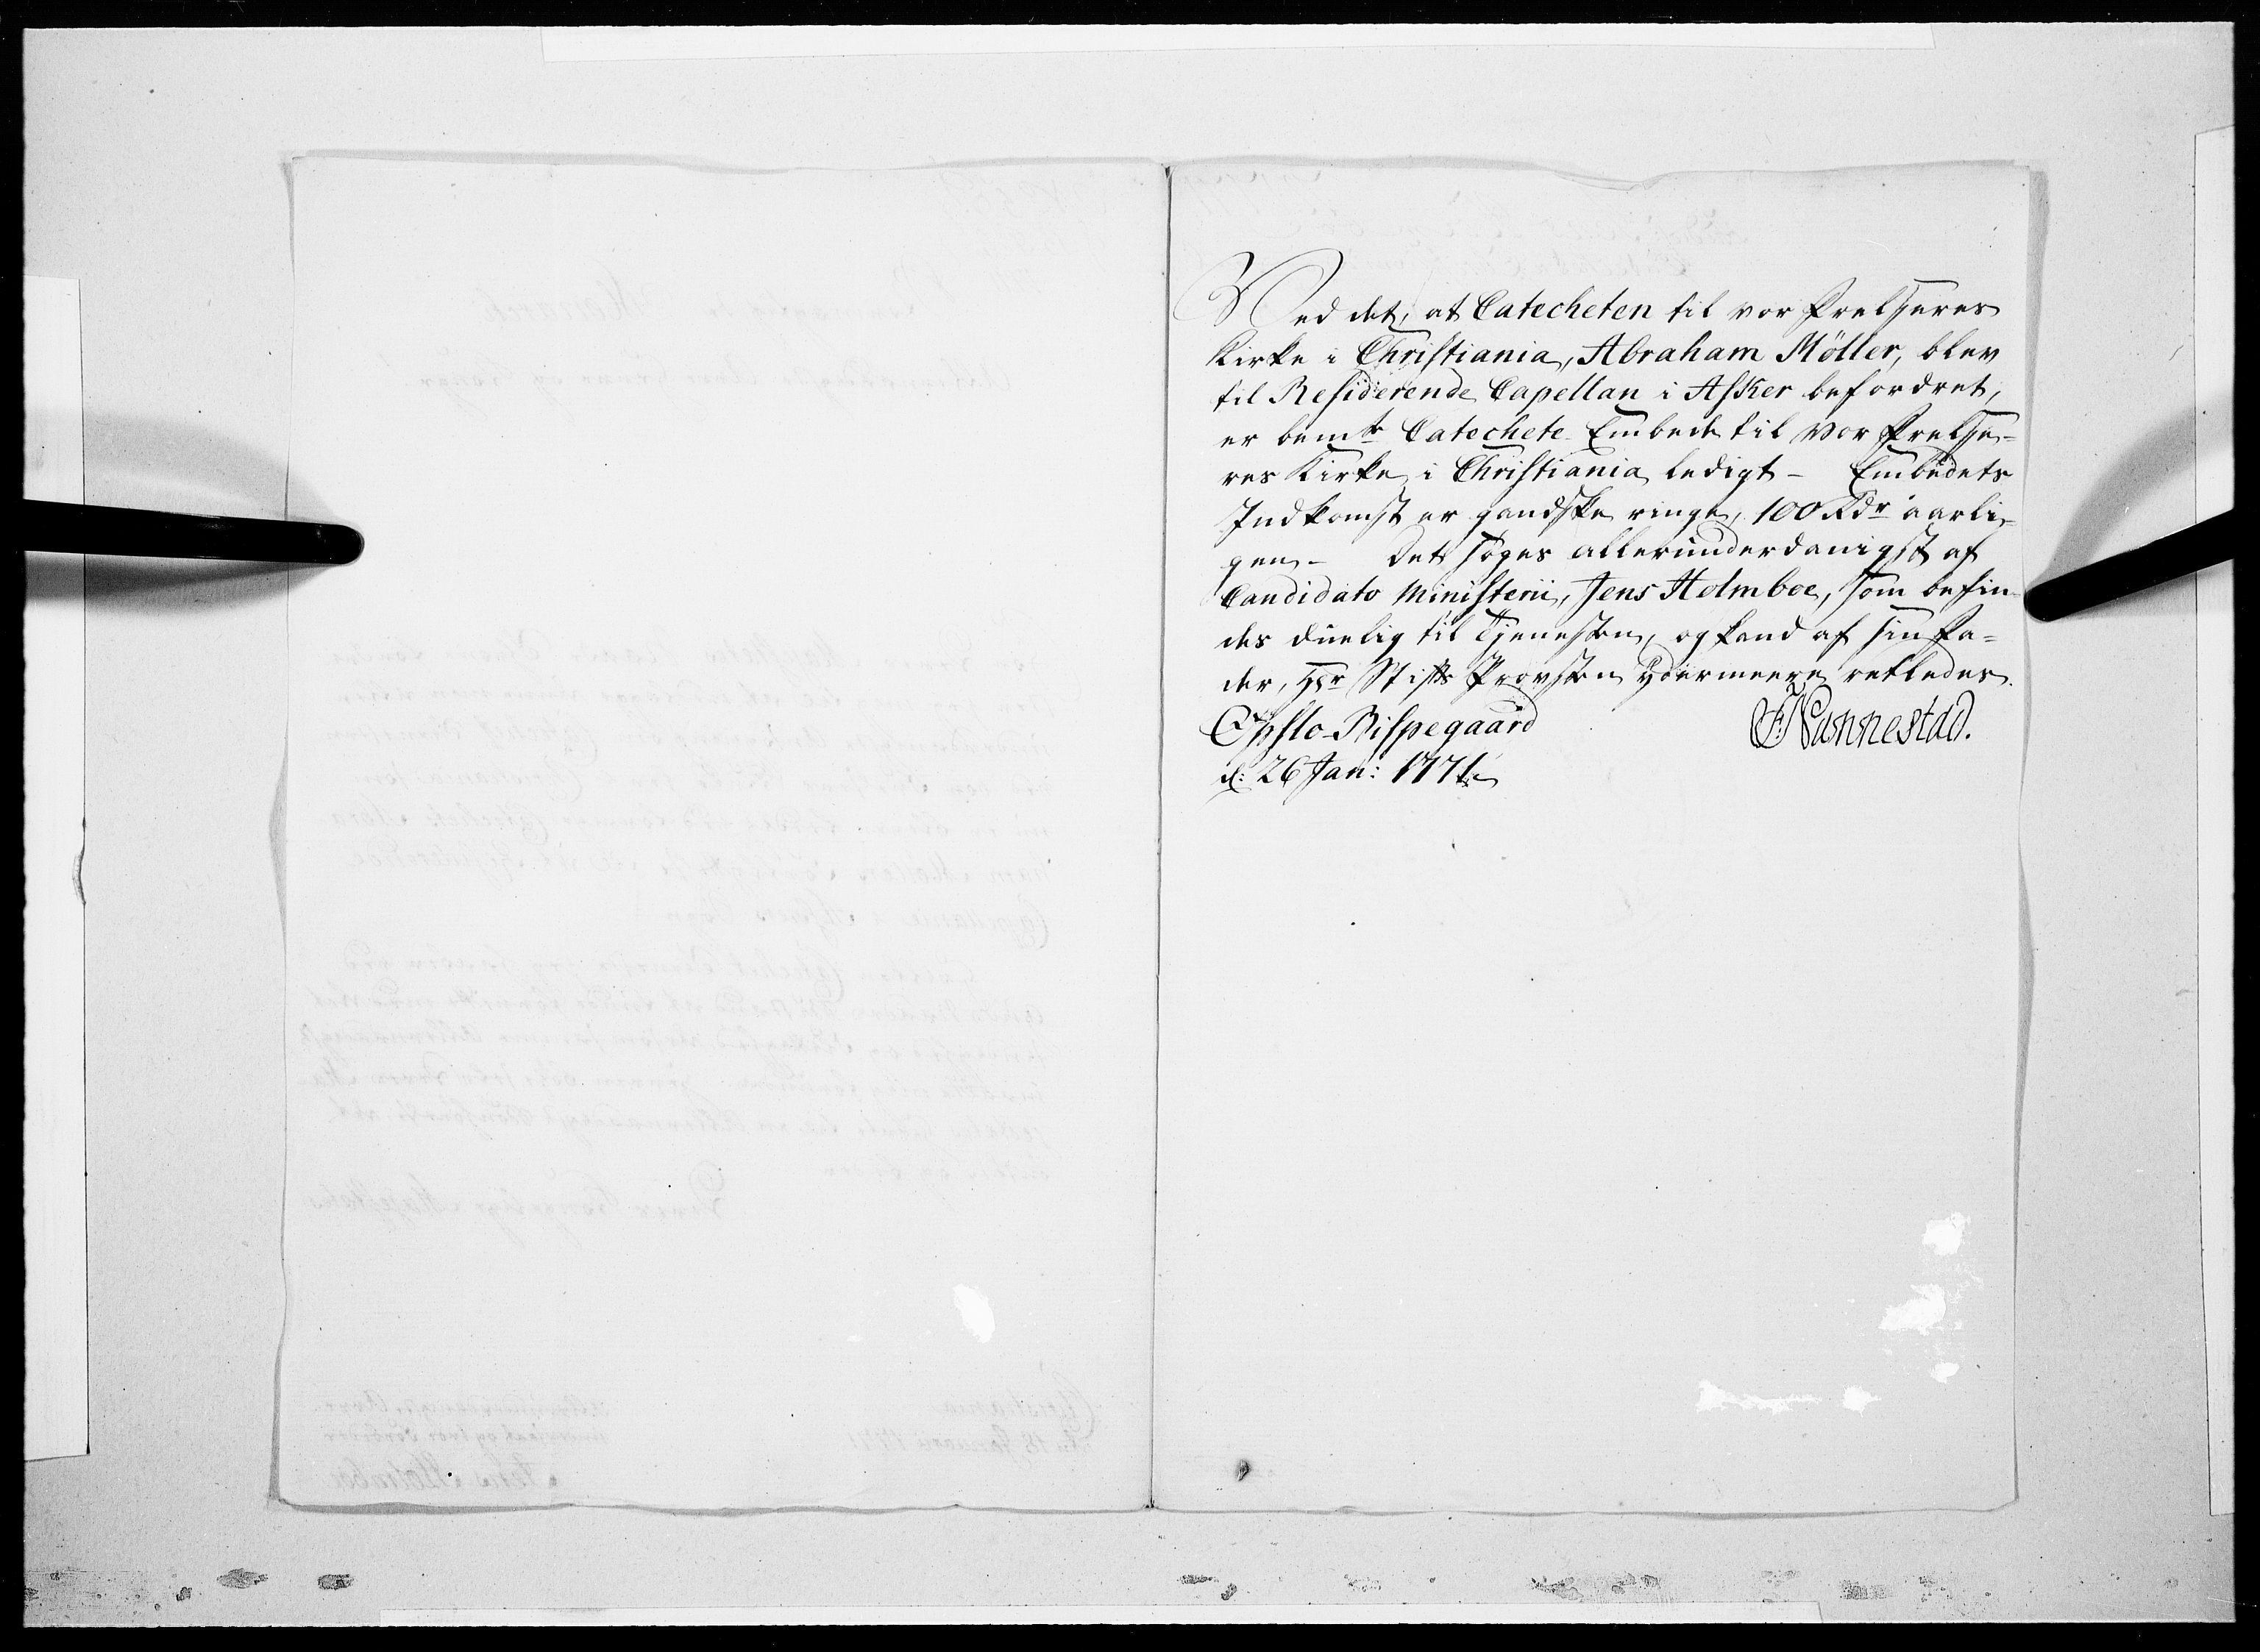 Ved det, at Catecheten til vor Frelseres
Kirke i Christiania, Abraham Möller, blev
til Residerende Capellan i Asker befordret,
er bemte Catechete Embede til Vor Frelse-
res Kirke i Christiania ledigt - Embedets
Indkomst er gandske ringe, 100 Rdr aarli-
gen - Det söges allerunderdanigst af
Candidato Ministerii, Jens Holmboe, som befin-
des duelig til Tjenesten, og kand af sin Fa-
der, Hr Stifts Provsten ydermeere retledes.
Opslo-Bispegaard F: Nannestad.
d: 26 Jan: 1771.